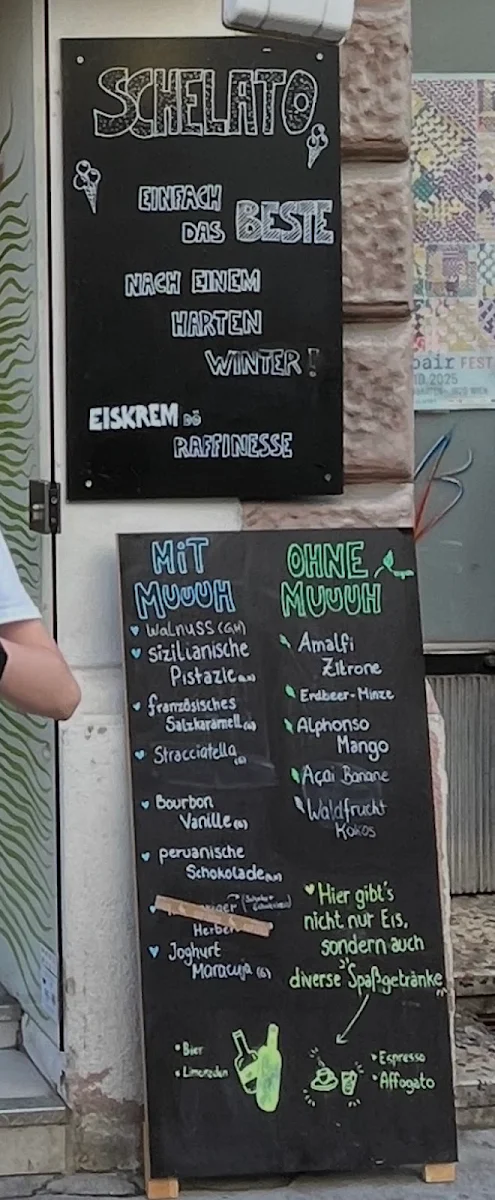 SCHELATO
EINFACH
DAS BESTE
NACH EINEM
HARTEN
WINTER!
EISKREM DÖ
RAFFINESSE
pair FEST
10.2025
MiT
MUUUH
Walnuss (G,H)
sizilianische
Pistazie
französisches
Salzkaramell (G)
Stracciatella (G)
Bourbon
Vanille (G)
peruanische
Schokolade
Herber
Joghurt
Maracuja (G)
OHNE
MUUUH
Amalfi
Zitrone
Erdbeer-Minze
Alphonso
Mango
Açai Banane
Waldfrucht
Kokos
Hier gibt's
nicht nur Eis,
sondern auch
diverse Spaßgetränke
Bier
Limonaden
Espresso
Affogato